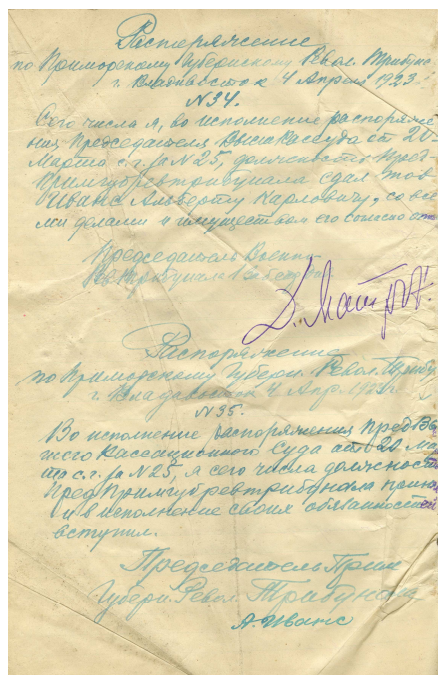 Распоряжение
по Приморскому Губернскому Револ. Трибун
г. Владивосток 4 Апреля 1923
N 34.
Сего числа я, во исполнение распоряже
ния Председателя Высш Кассуда от 20
Марта с.г. за N 25, должность Пред.
Примгубревтрибунала сдал тов
Иванс Альберту Карловичу, со все
ми делами и имуществом его согласно
Председатель Военно
Рев. Трибунала
Распоряжение
по Приморскому Губерн. Револ. Трибу
г. Владивосток 4 Апр. 192
N 35.
Во исполнение распоряжения Пред Вы
шего Кассационного Суда от 20 Ма
та с.г. за N 25, я сего числа должность
Пред Примгубревтрибунала принял
и в исполнение своих обязанностей
вступил.
Председатель Прим
Губерн. Револ. Трибунала
А. Иванс